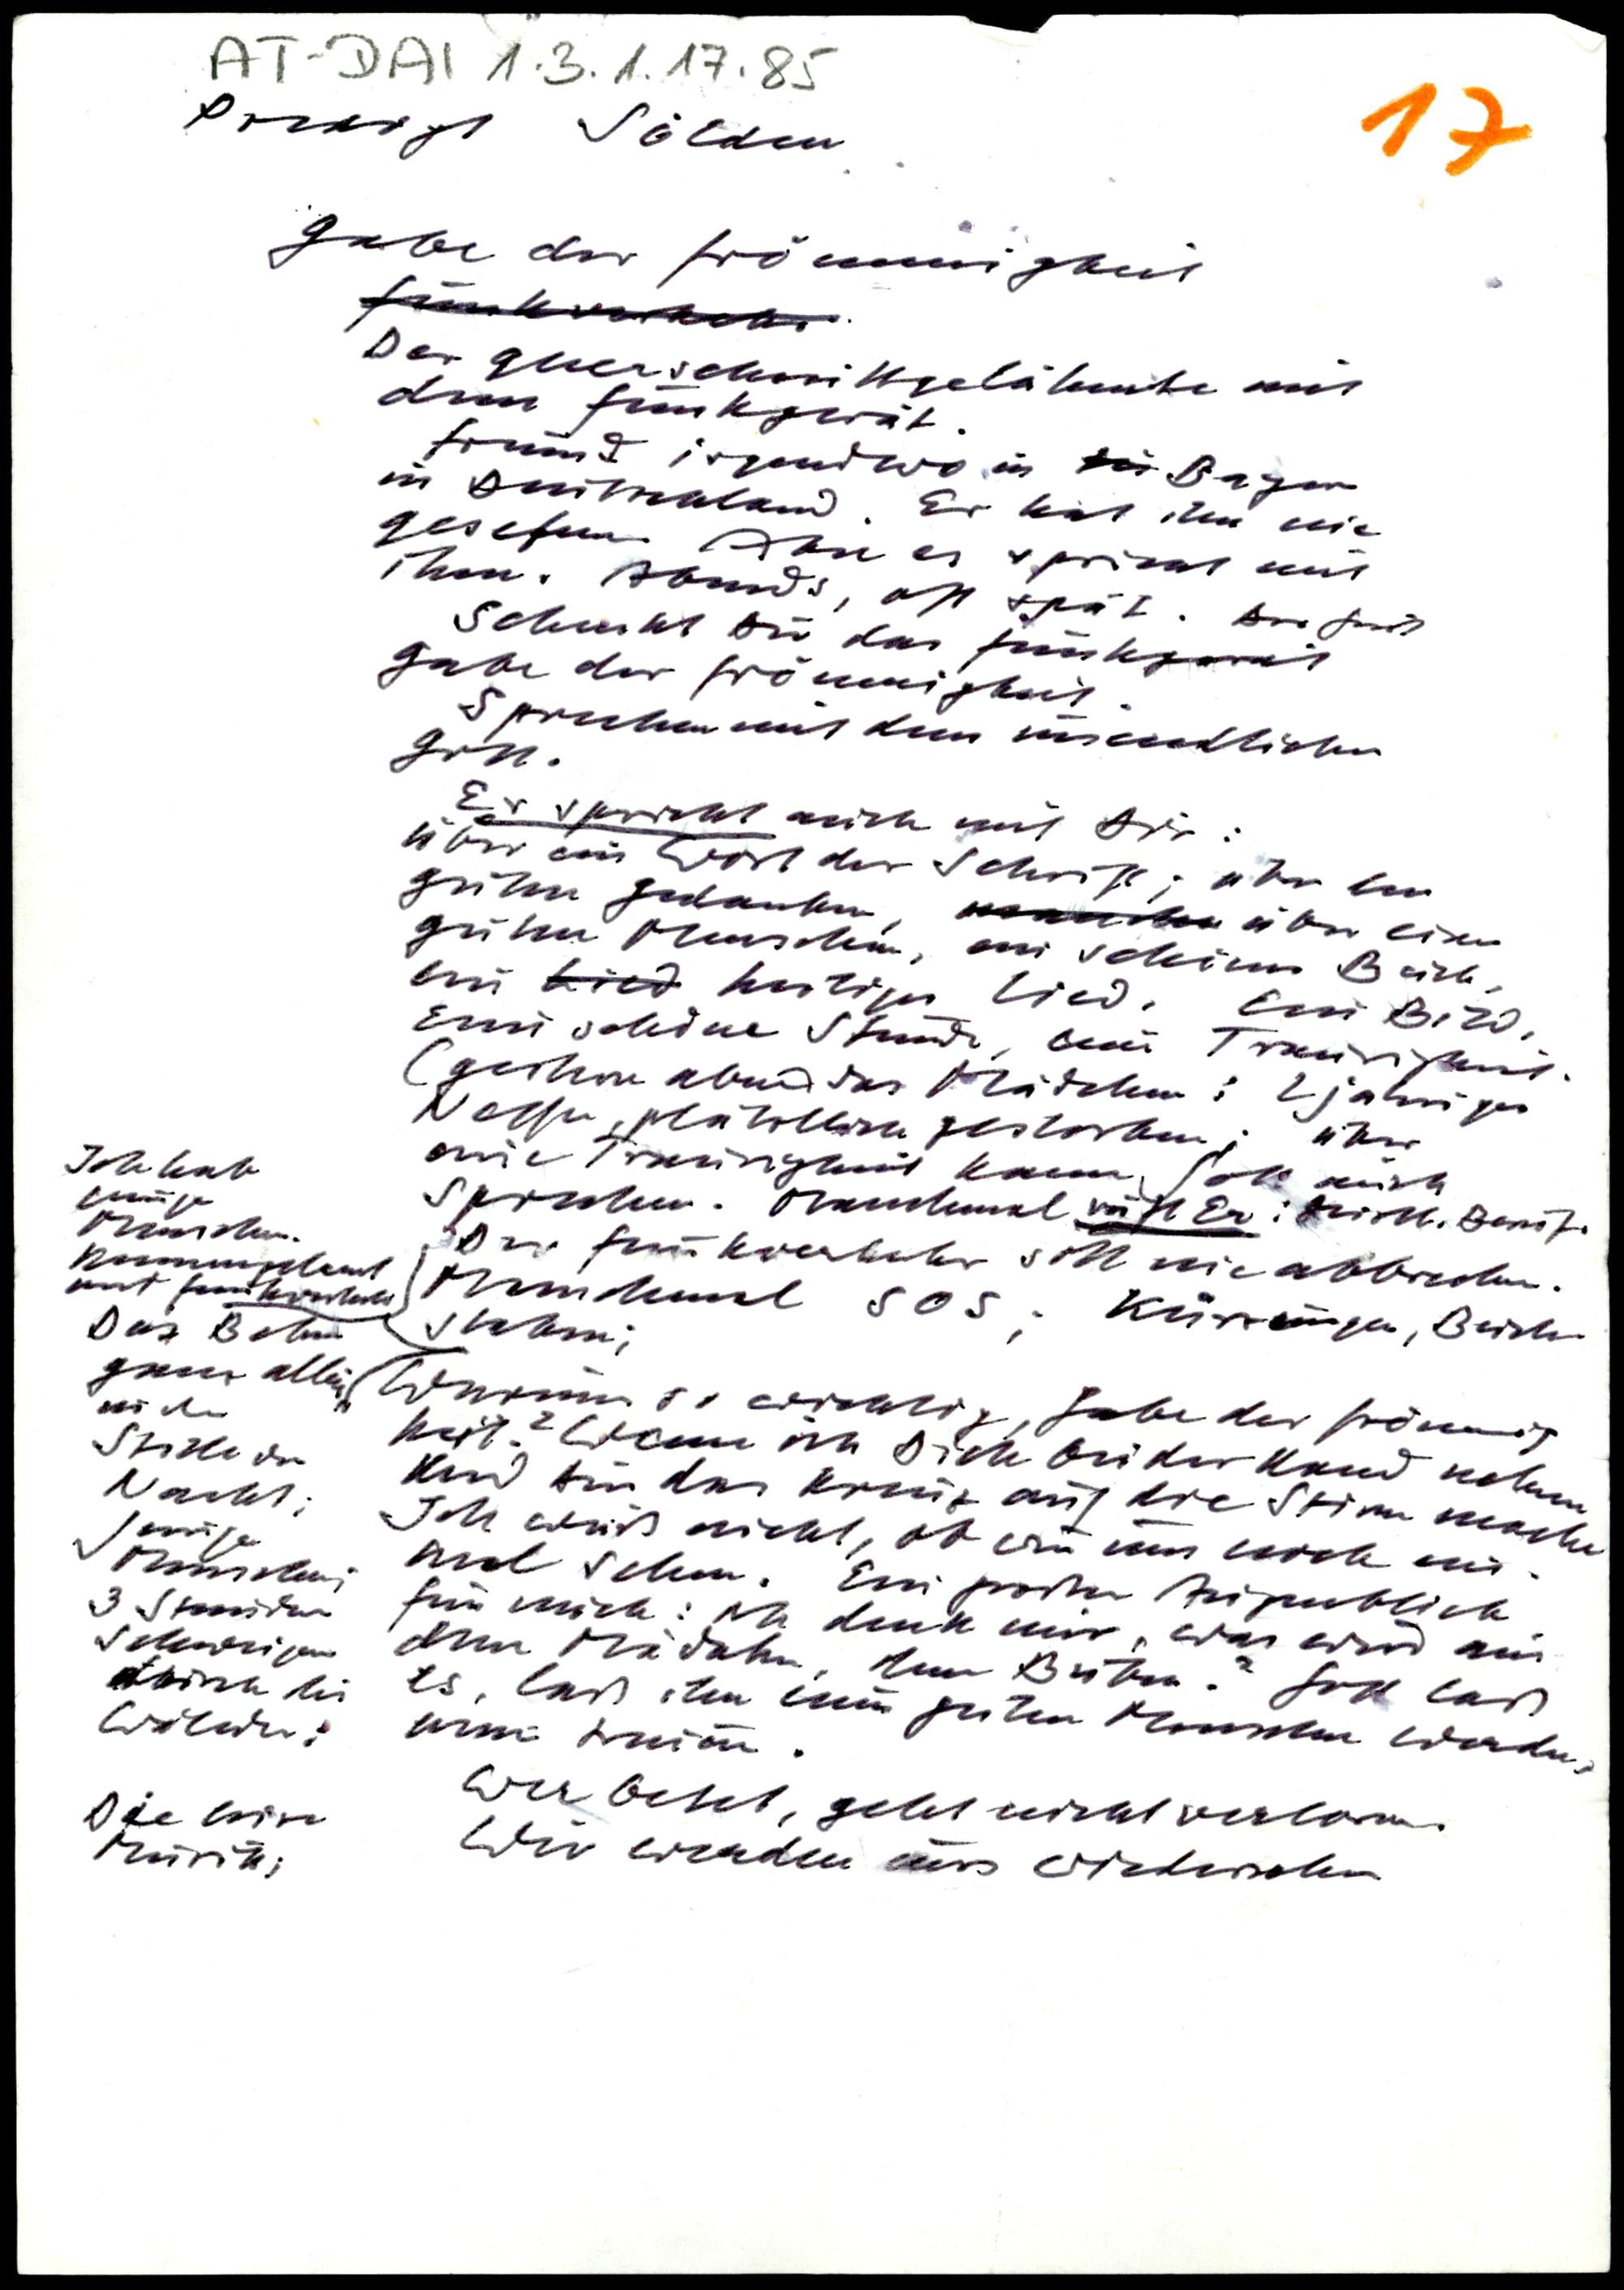 AT-DAI 1.3.1.17.85
17
Predigt Sölden
Gabe der Frömmigkeit
Funkverkehr.
Der Querschnittgelähmte mit
dem Funkgerät.
Freund irgendwo in Bayern
in Deutschland. Er hat ihn nie
gesehen. Aber er spricht mit
ihm. Abends, oft spät. Der Geist
schenkt Dir das Funkgerät
Gabe der Frömmigkeit.
Sprechen mit dem unendlichen
Gott.
Er spricht auch mit Dir:
über ein Wort der Schrift; über den
guten Gedanken, über einen
guten Menschen, ein schönes Buch,
ein Lied heutiges Lied. Ein Bild,
Eine schöne Stunde, eine Traurigkeit.
(gestern abend das Mädchen: 2jähriger
Neffe, plötzlich gestorben; über
eine Traurigkeit kann Gott auch
sprechen. Manchmal ruft Er: Beruf.
Der Funkverkehr soll nie abbrechen.
Manchmal SOS; Kürzungen, Buch-
staben;
Warum so wichtig, Gabe der Frömmig
keit? Wenn ich Dich bei der Hand nehme
und Dir das Kreuz auf die Stirn mache
Ich weiß nicht, ob wir uns noch ein-
mal sehen. Ein großer Augenblick
für mich: Ich denk mir, was wird aus
dem Mädchen, dem Buben? Gott laß
es, laß ihn einen guten Menschen werden,
Wer betet, geht nicht verloren.
Wir werden uns wiedersehen
Ich hab
junge
Menschen
kennengelernt
mit Funkverkehr
Das Beten
ganz allein
in der
Stille der
Nacht;
junge
Menschen;
3 Stunden
Schweigen
durch die
Wälder;
Die leise
Musik;